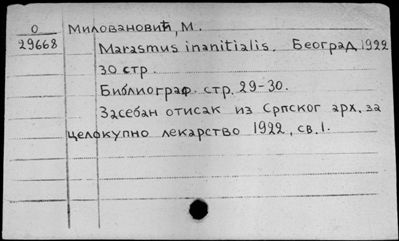 О Миловановић, М.
29668 Marasmus inanitialis. Београд 1922
30 стр.
Библиограф. стр. 29-30.
Засебан отисак из Српског арх. за
целокупно лекарство 1922, св. 1.